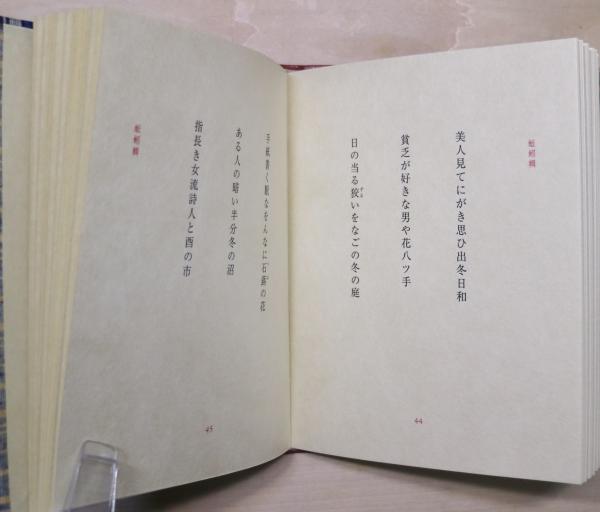 美人見てにがき思ひ出冬日和
貧乏が好きな男や花八ツ手
日の当る狡いをなごの冬の庭
44
手紙書くなをんなに石蕗の花
ある人の暗い半分冬の沼
指長き女流詩人と酉の市
45